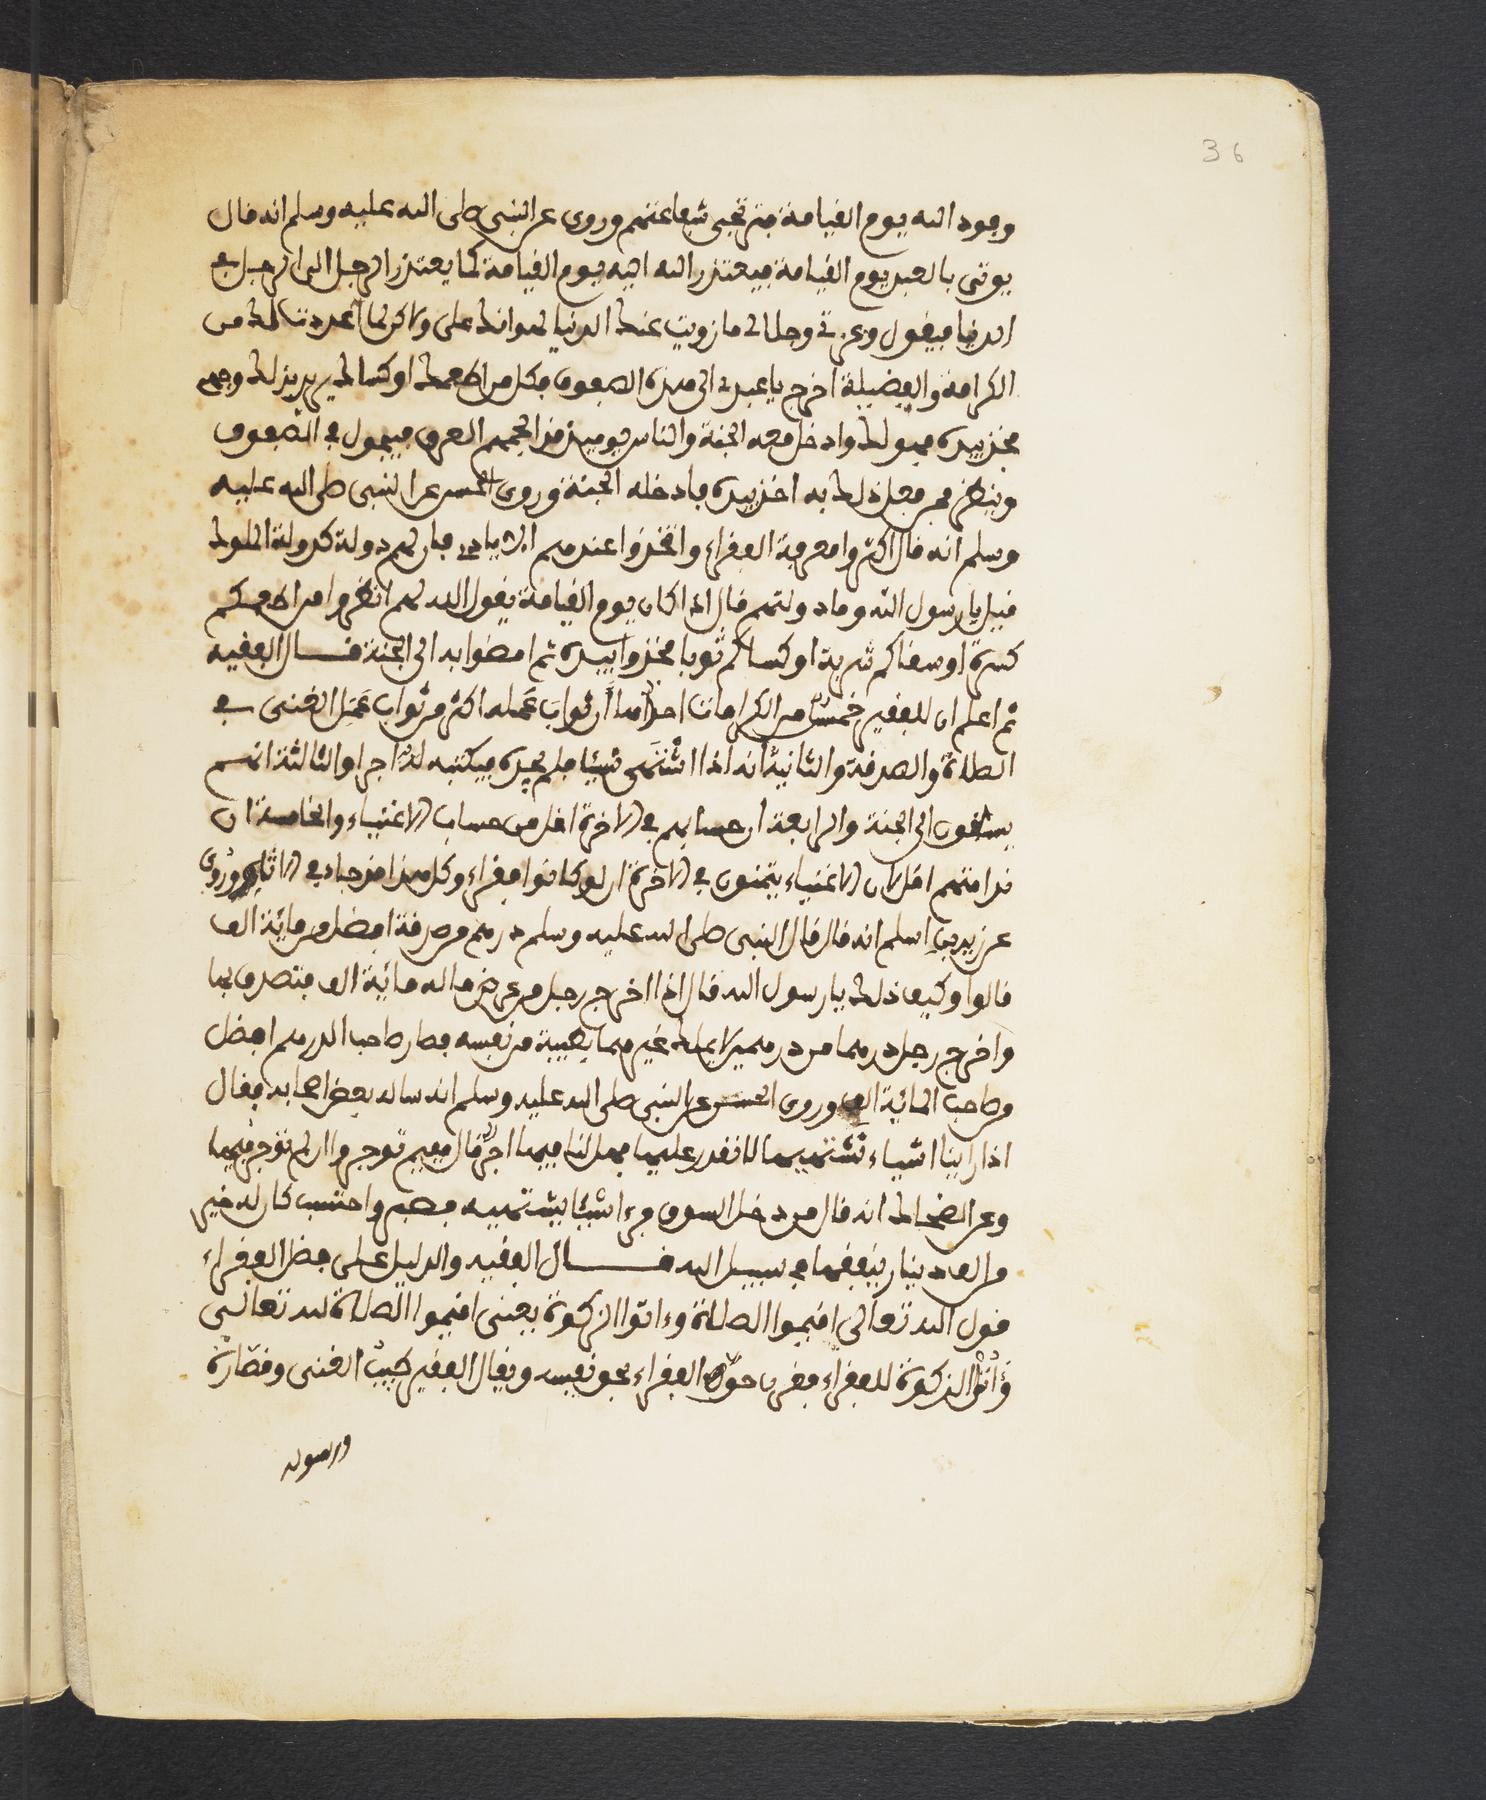 36
وفود الله يوم القيامة حتى تجى شفاعتهم وروى عن النبى صلى الله عليه وسلم انه قال
يوتى بالعبد يوم القيامة فيعتذر الله اليه يوم القيامة كما يعتذر الرجل الى الرجل في
الدنيا فيقول وعزتي وجلالى ما زويت عنك الدنيا لهوانك على ولاكن لما اعددت لك من
الكرامة والفضيلة اخرج يا عبدى الى هذه الصفوف فكل من اطعمك او كساك يريد بذلك وجهى
فخذ بيده فهو لك وادخل معه الجنة والناس يوميذ قد الجمهم العرق فيجول في الصفوف
وينظر من فعل ذلك به اخذ بيده فادخله الجنة وروى الحسن عن النبى صلى الله عليه
وسلم انه قال اكثروا معرفة الفقراء واتخذوا عندهم الايادى فان لهم دولة كدولة الملوك
فيل يا رسول الله وما دولتهم قال اذا كان يوم القيامة يقول الله لهم انظروا من اطعمكم
كسرة او سقاكم شربة او كساكم ثوبا فخذوا بيده ثم امضوا به الى الجنة قال الفقيه
ثم اعلم ان للفقير خمس من الكرامات احداها أن ثواب عمله اكثر من ثواب عمل الغنى في
الصلاة والصدقة والثانية انه اذا اشتهى شيئا ولم يجده فيكتب له اجرا والثالثة انهم
يسبقون الى الجنة والرابعة ان حسابهم في الاخرة اقل من حساب الاغنياء والخامسة ان
ندامتهم اقل لان الاغنياء يتمنون في الاخرة ان لو كانوا فقراء وكل هذا قد جاء في الاثار وروى
عن زيد بن اسلم انه قال قال النبى صلى الله عليه وسلم درهم من صدقة افضل من مائة الف
قالوا وكيف ذلك يا رسول الله قال اذا اخرج رجل من عرض ماله مائة الف فتصدق بها
واخرج رجل درهما من درهمين لا يملك غيرهما بطيبة من نفسه فصار صاحب الدرهم افضل
من صاحب المائة الف وروى الحسن عن النبى صلى الله عليه وسلم انه ساله بعض اصحابه فقال
اذا راينا اشياء نشتهيها لا نقدر عليها فهل لنا فيها اجر قال ففيم توجروا ان لم توجر فيها
وعن الضحاك انه قال من دخل السوق فرءا شيئا يشتهيه فصبر واحتسب كان له خير
من الف دينار ينفقها في سبيل الله قال الفقيه والدليل على فضل الفقراء
قول الله تعالى اقيموا الصلاة وءاتوا الزكوة يعنى اقيموا الصلاة لله تعالى
وءاتوا الزكوة للفقراء فقرن حق الفقراء بحق نفسه ويقال الفقير طبيب الغنى وقصاره
ورسوله